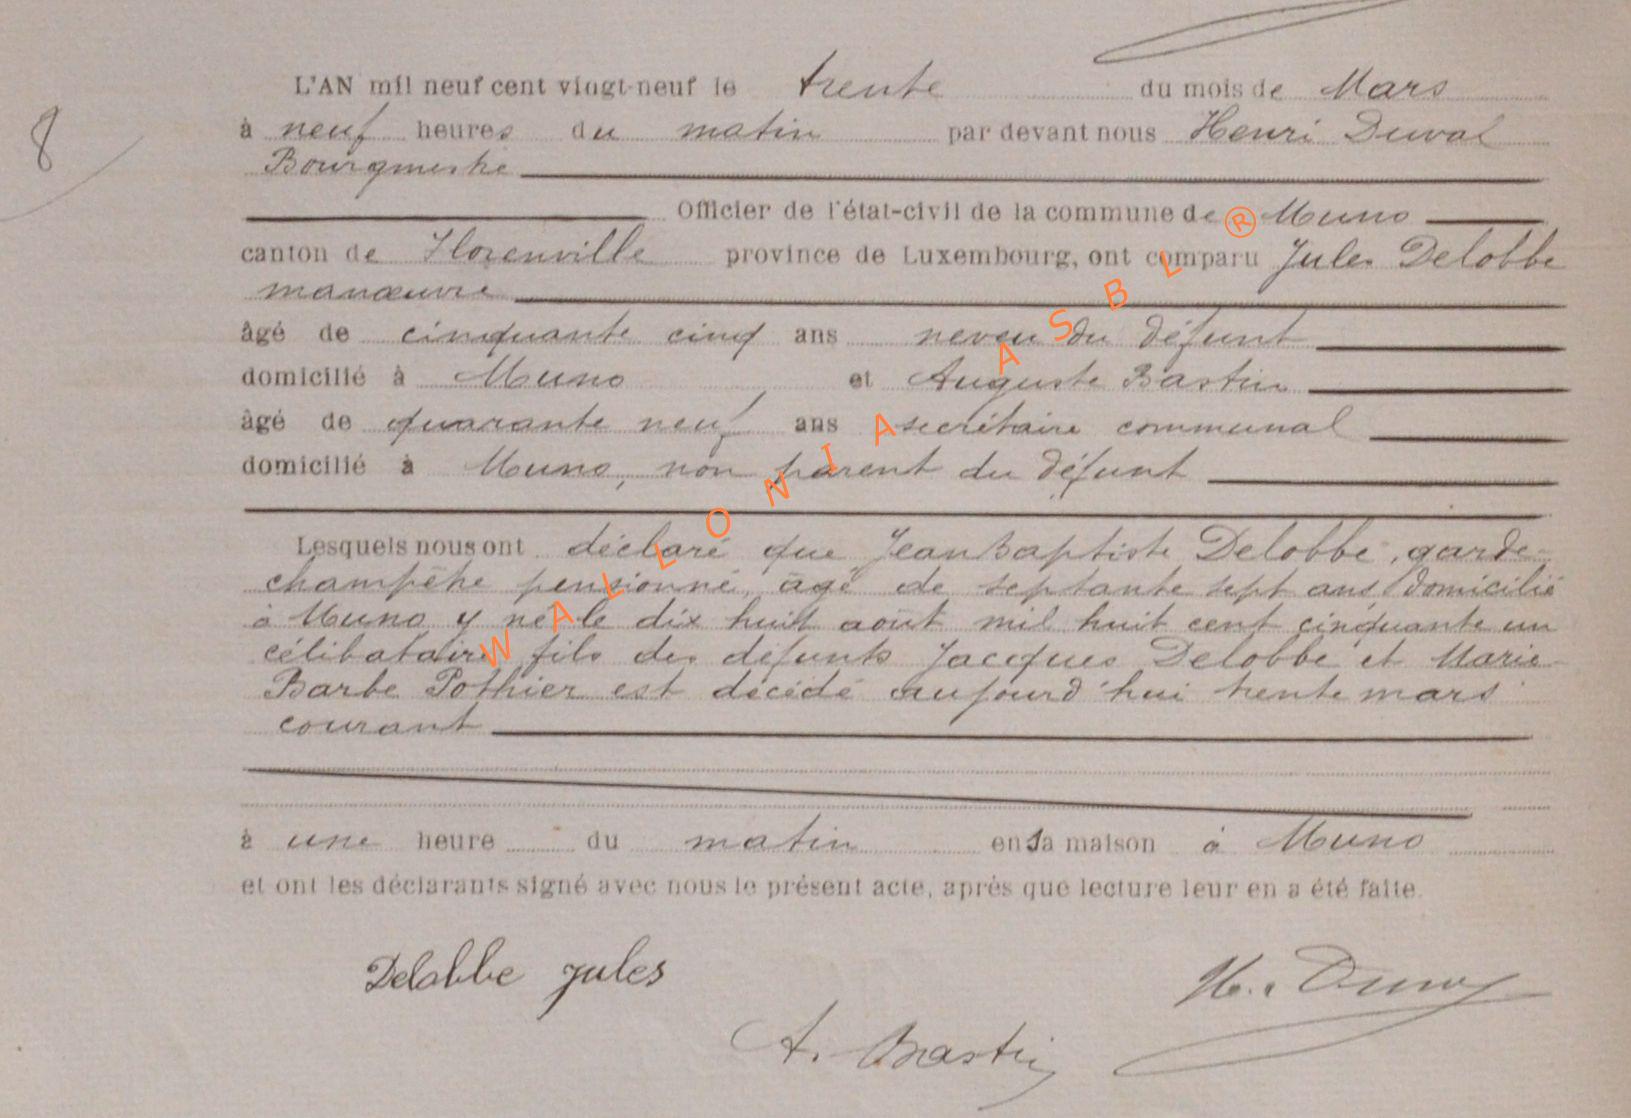 L'AN mil neuf cent vingt-neuf le trente du mois de Mars
8
à neuf heures du matin par devant nous Henri Duval
Bourgmestre
Officier de l'état-civil de la commune de Muno
canton de Florenville province de Luxembourg, ont comparu Jules Delobbe
manœuvre
âgé de cinquante cinq ans neveu du défunt
domicilié à Muno et Auguste Bastin
âgé de quarante neuf ans secrétaire communal
domicilié à Muno, non parent du défunt
Lesquels nous ont déclaré que Jean Baptiste Delobbe, garde-
champêtre pensionné, âgé de septante sept ans, domicilié
à Muno y né le dix huit août mil huit cent cinquante un
célibataire fils des défunts Jacques Delobbe et Marie-
Barbe Pothier est décédé aujourd'hui trente mars
courant
à une heure du matin en sa maison à Muno
et ont les déclarants signé avec nous le présent acte, après que lecture leur en a été faite.
Delobbe Jules
H. Duval
A. Bastin
WALLONIA ASBL ®